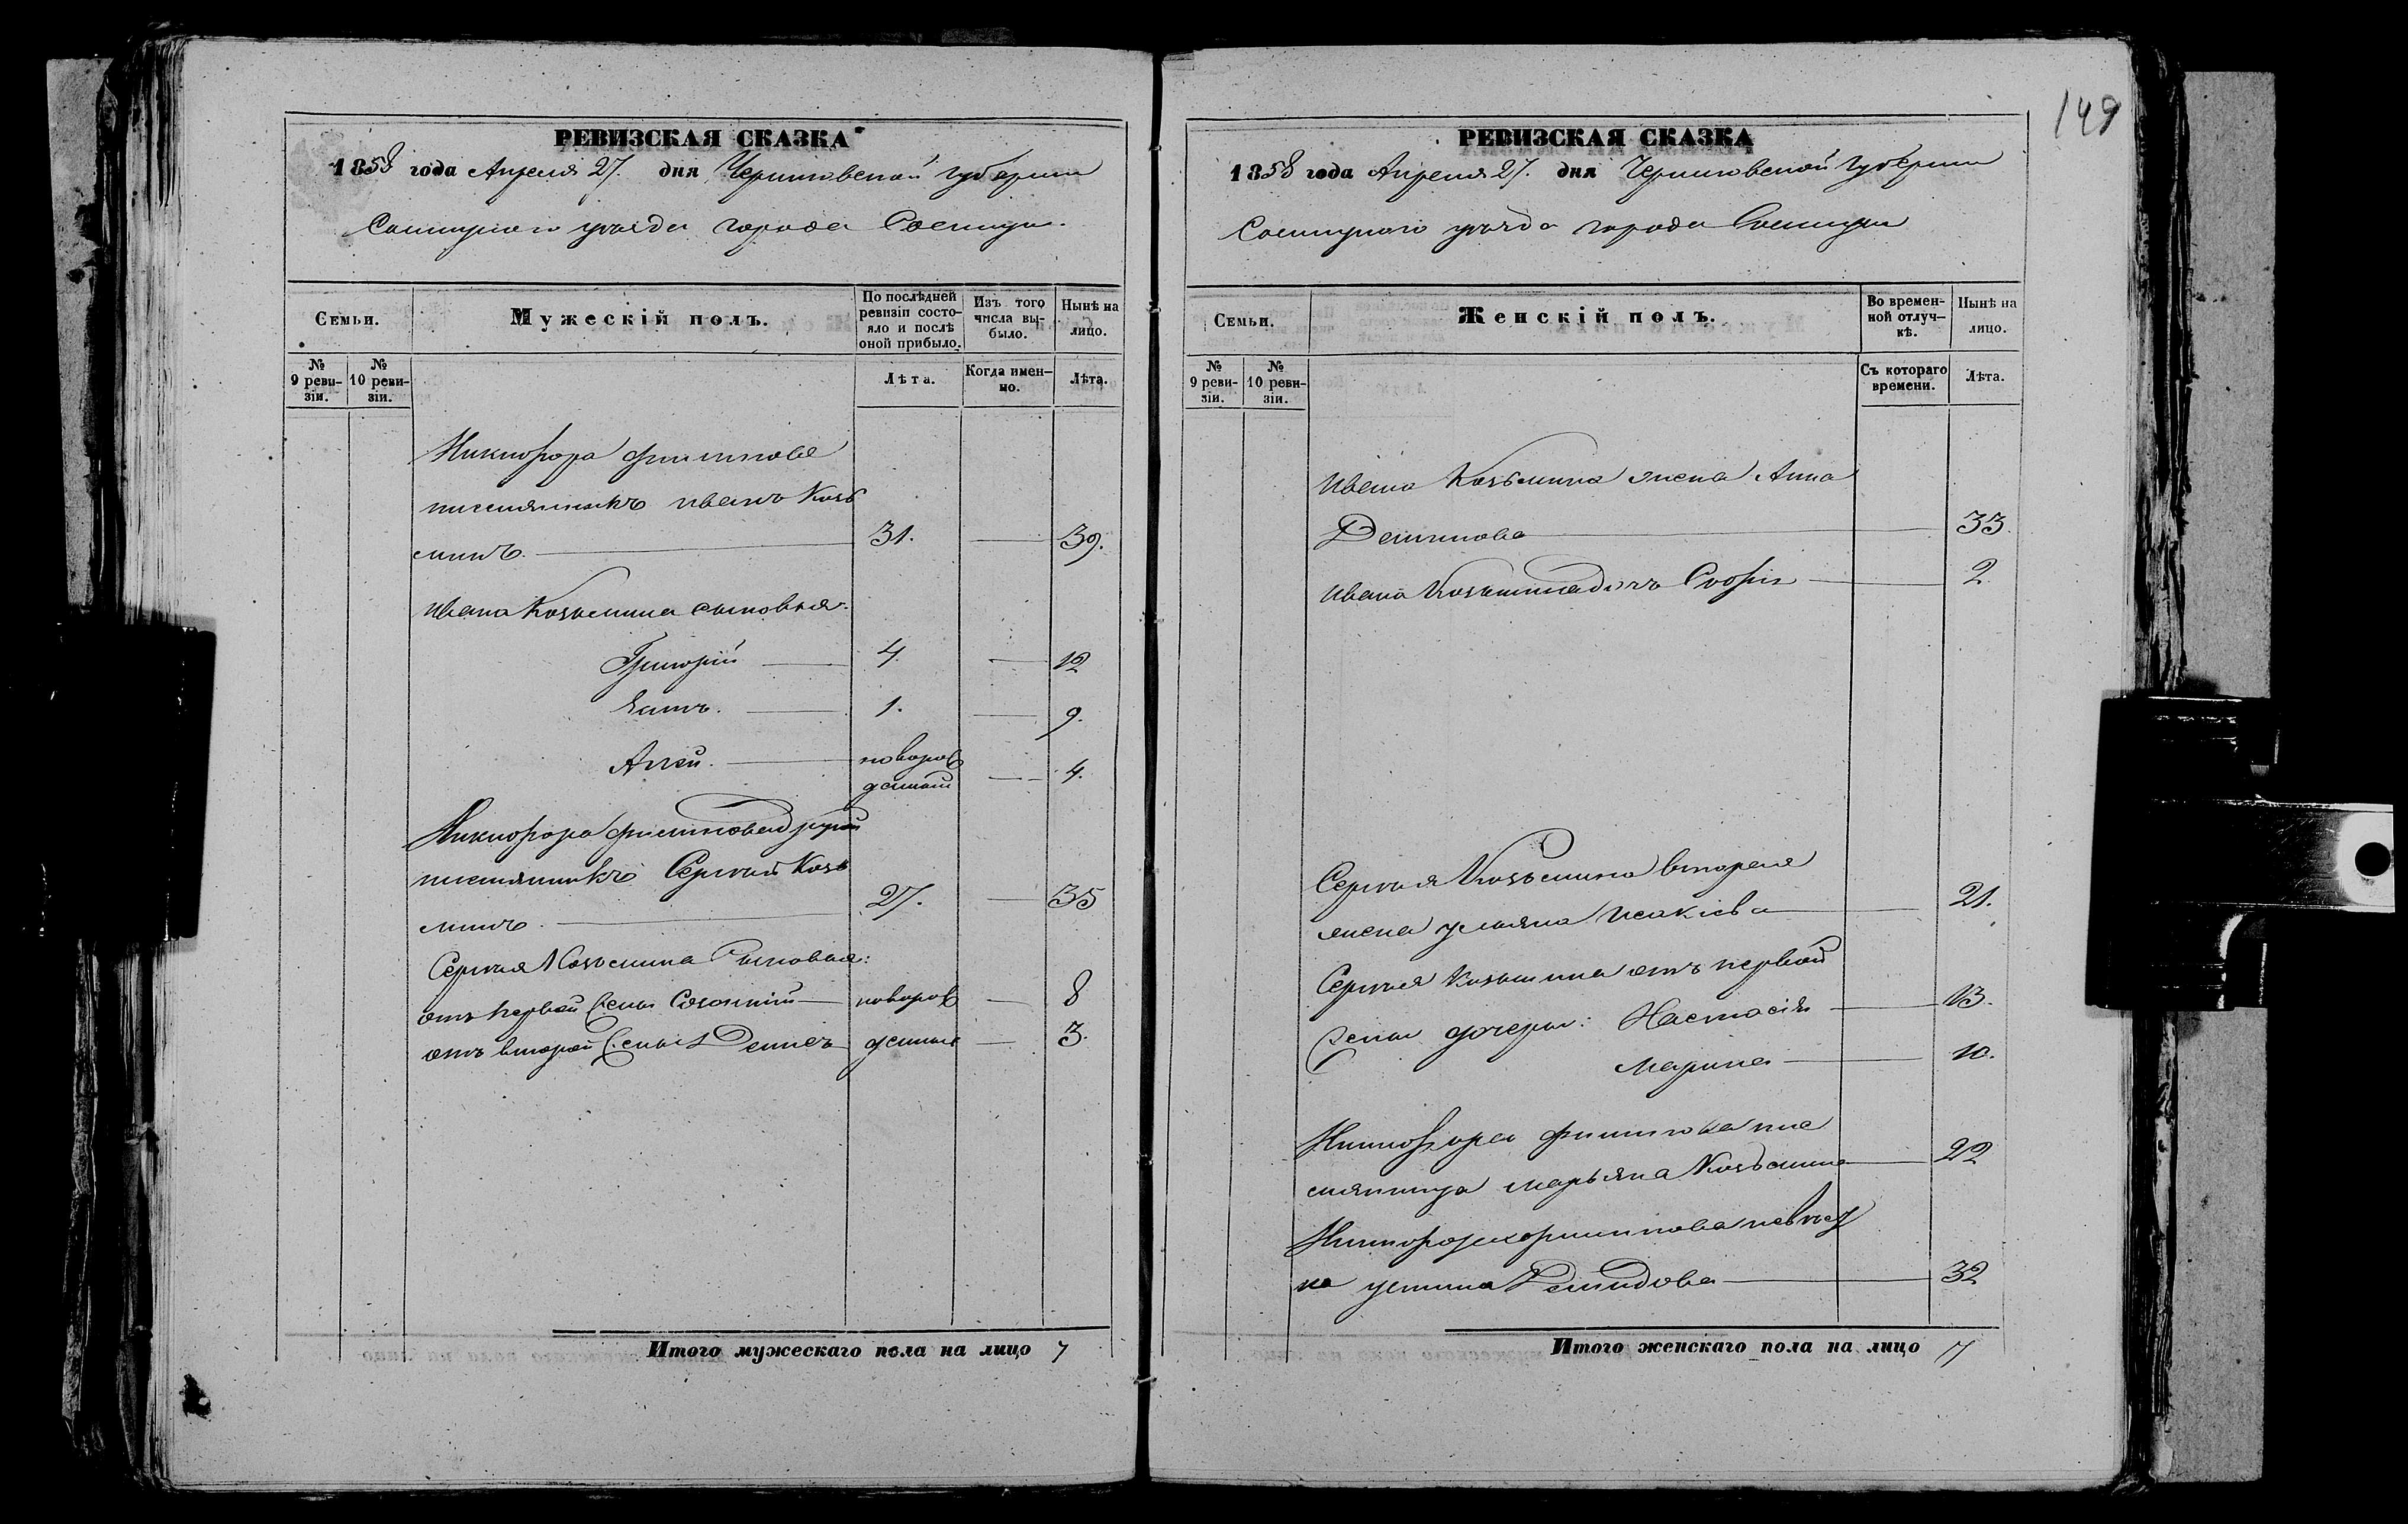 149
РЕВИЗСКАЯ СКАЗКА
1858 года Апреля 27. дня Черниговской губернии
Сосницкого уѣзда города Сосницы.
Семьи.
Мужескій полъ.
По послѣдней ревизіи состояло и послѣ оной прибыло.
Изъ того числа выбыло.
Нынѣ на лицо.
№ 9 ревизіи.
№ 10 ревизіи.
Лѣта.
Когда именно.
Лѣта.
Никифора Филипова
племянникъ иванъ Козь
минъ. 31. 39.
Ивана Козьмина сыновья:
Григорій 4. 12
1. 9.
новорож
денный 4.
Никифора Филипова другой
племянникъ Сергѣй Козь
минъ. 27. 35
Сергѣя Козьмина Сыновья:
отъ первой жены новорож 8
отъ второй жены Денисъ денные 3.
Итого мужескаго пола на лицо 7
РЕВИЗСКАЯ СКАЗКА
1858 года Апреля 27. дня Черниговской Губернии
Сосницкого уѣзда города Сосницы
Семьи.
Женскій полъ.
Во временной отлучкѣ.
Нынѣ на лицо.
№ 9 ревизіи.
№ 10 ревизіи.
Съ котораго времени.
Лѣта.
Ивана Козьмина жена Анна
33.
Ивана Козьмина дочь Софія 2
Сергѣя Козьмина вторая
жена ульяна Исакіева 21.
Сергѣя Козьмина отъ первой
жены дочери: Настасія 13.
Марина 10.
Никифора Филипова пле
мянница марьяна Козьмина 22
Никифора Филипова невѣст
ка устина Демидова 32
Итого женскаго пола на лицо 7